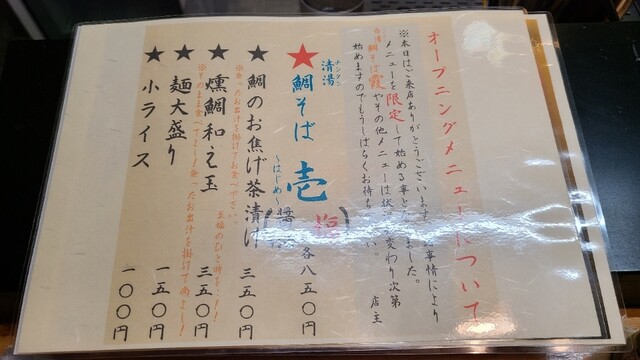 オープニングメニューについて
※本日はご来店ありがとうございます。 事情により
メニューを限定して始める事となりました。
白湯鯛そば霞やその他メニューは状況が変わり次第
始めますのでもうしばらくお待ち い。
店主
★清湯鯛そば 壱 各八五〇円
チンタン
～はじめ～
★鯛のお焦げ茶漬け 三五〇円
※余ったお出汁を掛けてお食べ下さい。
★燻鯛和え玉 三五〇円
至福のひと時を・・!!
※そのまま食べてよし!余ったお出汁を掛けて尚よし!
★麺大盛り 一五〇円
★小ライス 一〇〇円